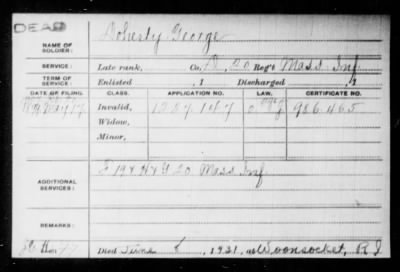 DEAD
Doherty George
NAME OF
SOLDIER:
SERVICE: Late rank, Co. D, 20 Reg't Mass Inf
TERM OF
SERVICE: Enlisted , 1 Discharged , 1
DATE OF FILING. CLASS. APPLICATION NO. LAW. CERTIFICATE NO.
Invalid, 1257147 986465
Widow,
Minor,
ADDITIONAL
SERVICES: F 19 & 20 Mass Inf
REMARKS:
Died June , 1921, at Woonsocket, R I